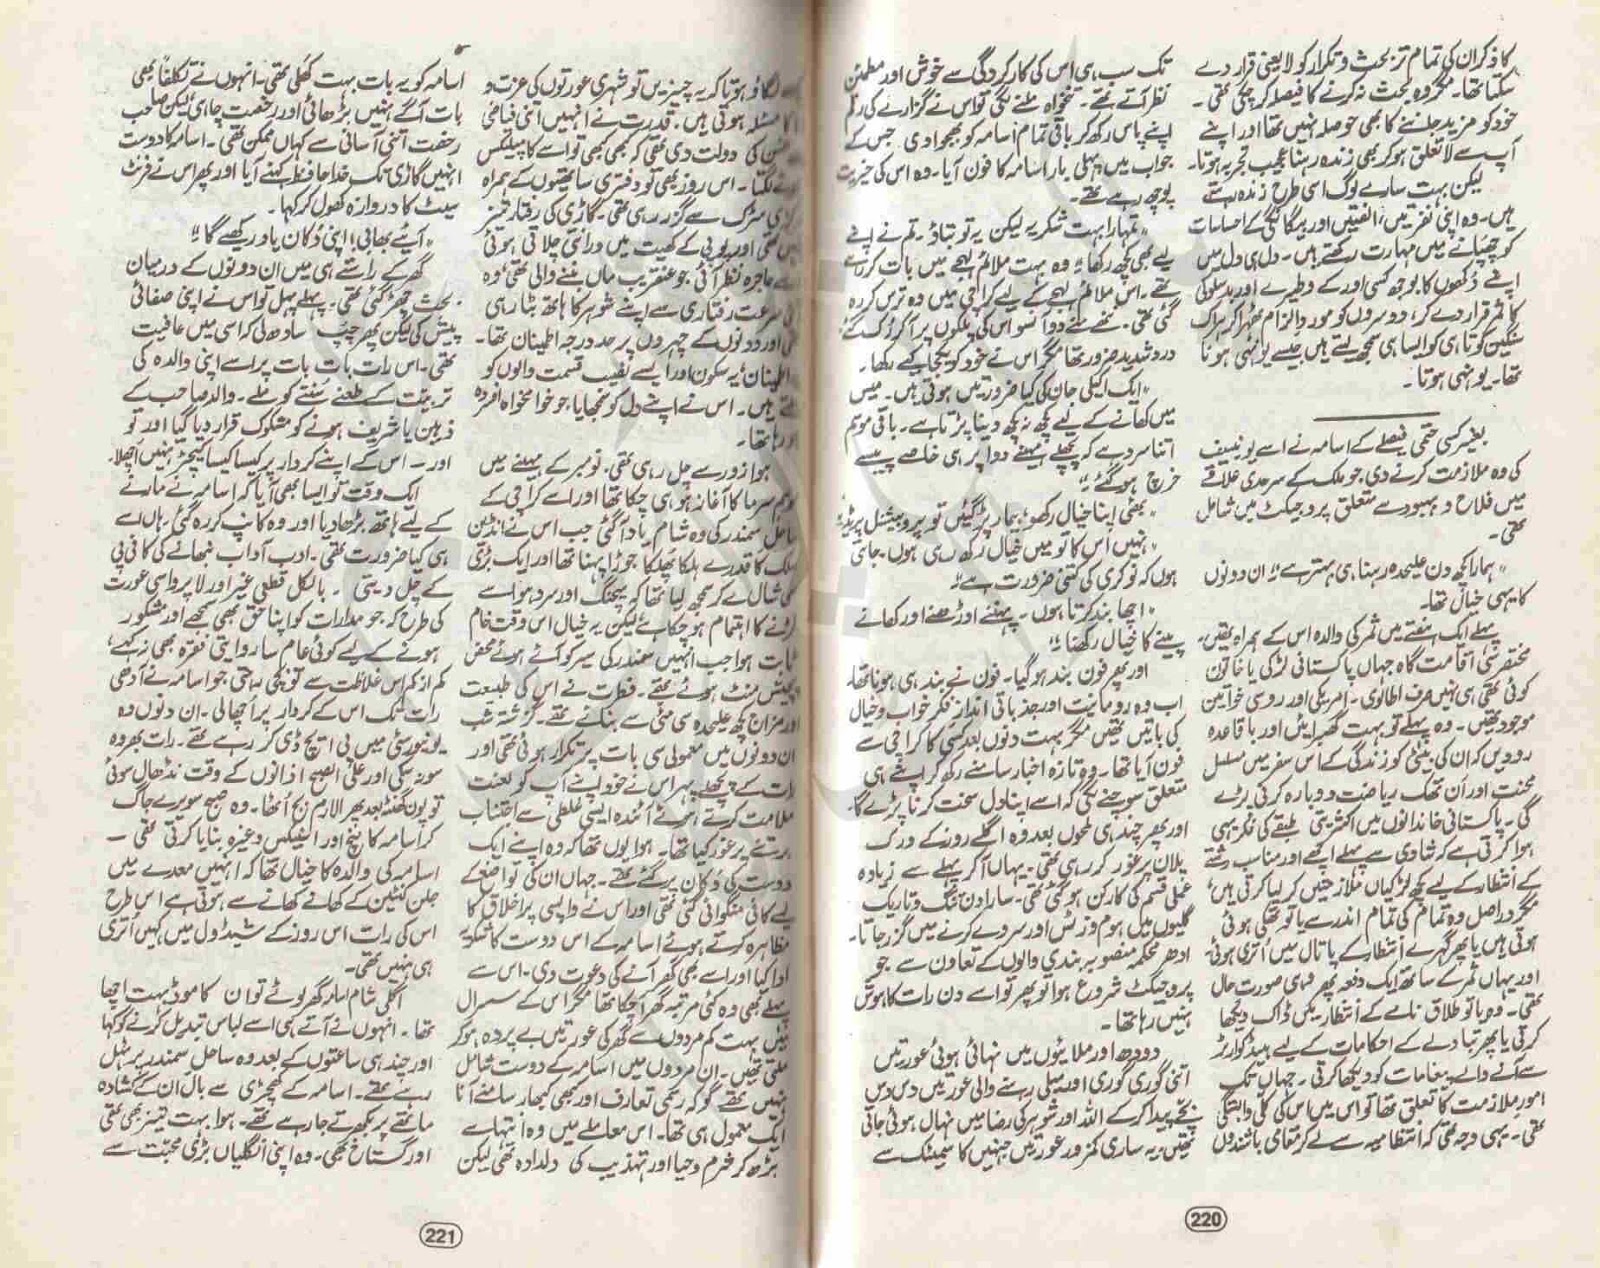 کا ذکر ان کی تمام تر بحث و تکرار کو لایعنی قرار دے
سکتا تھا۔ مگر وہ بحث نہ کرنے کا فیصلہ کر چکی تھی۔
خود کو مزید جلنے کا بھی حوصلہ نہیں تھا اور اپنے
آپ سے لاتعلق ہو کر بھی زندہ رہنا عجیب تجربہ ہوتا۔
لیکن بہت سارے لوگ اسی طرح زندہ رہتے
ہیں۔ وہ اپنی نفرتیں، الفتیں اور بیگانگی کے احساسات
کو چھپانے میں مہارت رکھتے ہیں۔ دل ہی دل میں
اپنے دکھوں کا بوجھ کسی اور کے وطیرے اور بدسلوکی
کا ثمر قرار دے کر، دوسروں کو مورد الزام ٹھہرا کر ہر اک
سنگین کوتاہی کو ایسا ہی سمجھ لیتے ہیں جیسے یونہی ہونا
تھا۔ یونہی ہوتا۔
بغیر کسی حتمی فیصلے کے اسامہ نے اسے یونیسیف
کی وہ ملازمت کرنے دی جو ملک کے سرحدی علاقے
میں فلاح و بہبود سے متعلق پروجیکٹ میں شامل
تھی۔
"ہمارا کچھ دن علیحدہ رہنا ہی بہتر ہے" ان دونوں
کا یہی خیال تھا۔
پہلے ایک ہفتے میں ثمر کی والدہ اس کے ہمراہ رہیں۔
مختصر سی اقامت گاہ جہاں پاکستانی لڑکی یا خاتون
کوئی تھی ہی نہیں صرف اطالوی، امریکی اور روسی خواتین
موجود تھیں۔ وہ پہلے تو بہت گھبرائیں اور باقاعدہ
رو دیں کہ ان کی بیٹی کو زندگی کے اس سفر میں مسلسل
محنت اور ان تھک ریاضت دوبارہ کرنی پڑے
گی۔ پاکستانی خاندانوں میں اکثریتی طبقے کی فکر یہی
ہوا کرتی ہے کہ شادی سے پہلے اچھے اور مناسب رشتے
کے انتظار کے لیے کچھ لڑکیاں ملازمتیں کر لیا کرتی ہیں،
مگر دراصل وہ تمام کی تمام اندر سے یا تو تھکی ہوئی
ہوتی ہیں یا پھر گہرے انتظار کے پاتال میں اتری ہوئی
اور یہاں ثمر کے ساتھ ایک دفعہ پھر وہی صورت حال
تھی۔ وہ یا تو طلاق نامے کے انتظار میں ڈاک دیکھا
کرتی یا پھر تبادلے کے احکامات کے لیے ہیڈ کوارٹر
سے آنے والے پیغامات کو دیکھا کرتی۔ جہاں تک
امور ملازمت کا تعلق تھا تو اس میں اس کی کلی وابستگی
تھی۔ یہی وجہ تھی کہ انتظامیہ سے لے کر مقامی باشندوں
تک سب ہی اس کی کارکردگی سے خوش اور مطمئن
نظر آتے تھے۔ تنخواہ ملنے لگی تو اس نے گزارے کی رقم
اپنے پاس رکھ کر باقی تمام اسامہ کو بھجوا دی جس کے
جواب میں پہلی بار اسامہ کا فون آیا۔ وہ اس کی خیریت
پوچھ رہے تھے۔
"تمہارا بہت شکریہ لیکن یہ تو بتاؤ۔ تم نے اپنے
لیے بھی کچھ رکھا" وہ بہت ملائم لہجے میں بات کرتے
تھے۔ اس ملائم لہجے کے لیے کراچی میں وہ ترس کر رہ
گئی تھی۔ ننھے ننھے دو آنسو اس کی پلکوں پر آ کر رک گئے
درد شدید ضرور تھا مگر اس نے خود کو یکجا کیے رکھا۔
"ایک اکیلی جان کی کیا ضرورتیں ہوتی ہیں۔ میس
میں کھانے کے لیے کچھ نہ کچھ دینا پڑتا ہے۔ باقی موسم
اتنا سرد ہے کہ پچھلے مہینے دوا پر ہی خاصے پیسے
خرچ ہو گئے"
"بھئی اپنا خیال رکھو، بیمار پڑ گئیں تو پروبیشنل پریڈ"
"نہیں اس کا تو میں خیال رکھ رہی ہوں۔ جانتی
ہوں کہ نوکری کی کتنی ضرورت ہے"
"اچھا بند کرتا ہوں۔ پہننے اوڑھنے اور کھانے
پینے کا خیال رکھنا"
اور پھر فون بند ہو گیا۔ فون نے بند ہی ہونا تھا۔
اب وہ رومانیت اور جذباتی انداز فکر خواب و خیال
کی باتیں تھیں مگر بہت دنوں بعد کسی کا کراچی سے
فون آیا تھا۔ وہ تازہ اخبار سامنے رکھ کر اپنے ہی
متعلق سوچنے لگی کہ اسے اپنا دل سخت کرنا پڑے گا۔
اور پھر چند ہی لمحوں بعد وہ اگلے روز کے ورک
پلان پر غور کر رہی تھی۔ یہاں آ کر پہلے سے زیادہ
عملی قسم کی کارکن ہو گئی تھی۔ سارا دن تنگ و تاریک
گلیوں میں ہوم وزٹس اور سروے کرنے میں گزر جاتا۔
ادھر محکمہ منصوبہ بندی والوں کے تعاون سے جو
پروجیکٹ شروع ہوا تو پھر تو اسے دن رات کا ہوش
نہیں رہا تھا۔
دودھ اور ملائیوں میں نہائی ہوئی عورتیں
اتنی گوری گوری اور میلی رہنے والی عورتیں دس دس
بچے پیدا کر کے اللہ اور شوہر کی رضا میں نہال ہوئی جاتی
تھیں، یہ ساری کمزور عورتیں جنہیں کاسمیٹک سے
220
لگاؤ ہوتا کہ یہ چیزیں تو شہری عورتوں کی عزت و
کا مسئلہ ہوتی ہیں۔ قدرت نے انہیں اتنی فیاضی
حسن کی دولت دی تھی کہ کبھی کبھی تو اسے کامپلیکس
ہونے لگتا۔ اس روز بھی تو دفتری ساتھیوں کے ہمراہ
سڑک سے گزر رہی تھی۔ گاڑی کی رفتار تیز
تھی اور پوپی کے کھیت میں درانتی چلاتی ہوئی
عاجرہ نظر آئی جو عنقریب ماں بننے والی تھی وہ
سرعت رفتاری سے اپنے شوہر کا ہاتھ بٹا رہی
تھی اور دونوں کے چہروں پر حد درجہ اطمینان تھا۔
اطمینان، یہ سکون اور ایسے نصیب قسمت والوں کو
ملتے ہیں۔ اس نے اپنے دل کو سمجھایا، جو خوامخواہ افسردہ
ہو رہا تھا۔
ہوا زور سے چل رہی تھی۔ نومبر کے مہینے میں
موسم سرما کا آغاز ہو ہی چکا تھا اور اسے کراچی کے
ساحل سمندر کی وہ شام یاد آ گئی جب اس نے انڈین
سلک کا قدرے ہلکا پھلکا جوڑا پہنا تھا اور ایک بڑی
سی شال لے کر سمجھ لیا تھا کہ میچنگ اور سرد ہوا سے
لڑنے کا اہتمام ہو چکا ہے لیکن یہ خیال اس وقت خام
ثابت ہوا جب انہیں سمندر کی سیر کو آئے ہوئے محض
بیس منٹ ہوئے تھے۔ فطرت نے اس کی طبیعت
اور مزاج کچھ علیحدہ سی مٹی سے بنائے تھے۔ گزشتہ شب
ان دونوں میں معمولی سی بات پر تکرار ہوئی تھی اور
رات کے پچھلے پہر اس نے خود اپنے آپ کو لعنت
ملامت کرتے ہوئے آئندہ ایسی غلطی سے اجتناب
برتنے پر غور کیا تھا۔ ہوا یوں تھا کہ وہ اپنے ایک
دوست کی دکان پر گئے تھے۔ جہاں ان کی تواضع کے
لیے کافی منگوائی گئی تھی اور اس نے واپسی پر اخلاق کا
مظاہرہ کرتے ہوئے اسامہ کے اس دوست کا شکریہ
ادا کیا اور اسے بھی گھر آنے کی دعوت دی۔ اس سے
پہلے بھی وہ کئی مرتبہ گھر آ چکا تھا مگر اس کے سسرال
میں بہت کم مردوں کے گھر کی عورتیں بے پردہ ہو کر
ملتی تھیں۔ ان مردوں میں اسامہ کے دوست شامل
نہیں تھے گو کہ رسمی تعارف اور کبھی کبھار سامنے آنا
ایک معمول ہی تھا۔ اس معاملے میں وہ انتہا سے
بڑھ کر شرم و حیا اور تہذیب کی دلدادہ تھی لیکن
اسامہ کو یہ بات بہت کھلی تھی۔ انہوں نے تکلفاً بھی
بات آگے نہیں بڑھائی اور رخصت چاہی لیکن صاحب
رخصت اتنی آسانی سے کہاں ممکن تھی۔ اسامہ کا دوست
انہیں گاڑی تک خدا حافظ کہنے آیا اور پھر اس نے فرنٹ
سیٹ کا دروازہ کھول کر کہا۔
"آیئے بھابی! اپنی دکان یاد رکھیے گا"
گھر کے راستے ہی میں ان دونوں کے درمیان
بحث چھڑ گئی تھی۔ پہلے پہل تو اس نے اپنی صفائی
پیش کی لیکن پھر چپ سادھ لی کہ اسی میں عافیت
تھی۔ اس رات بات بات پر اسے اپنی والدہ کی
تربیت کے طعنے سننے کو ملے۔ والد صاحب کے
ذہین یا شریف ہونے کو مشکوک قرار دیا گیا اور تو
اور — اس کے اپنے کردار پر کیسا کیسا کیچڑ نہیں اچھلا۔
ایک وقت تو ایسا بھی آیا کہ اسامہ نے مارنے
کے لیے ہاتھ بڑھا دیا اور وہ کانپ کر رہ گئی۔ ہاں اسے
ہی کیا ضرورت تھی۔ ادب آداب نبھانے کی کافی پی
کے چل دیتی۔ بالکل قطعی غیر اور لاپروا سی عورت
کی طرح کہ جو مدارات کو اپنا حق بھی سمجھے اور مشکور
ہونے کے لیے کوئی عام سا روایتی فقرہ بھی نہ کہے،
کم از کم اس غلاظت سے تو بچی رہتی جو اسامہ نے آدھی
رات تک اس کے کردار پر اچھالی۔ ان دنوں وہ
یونیورسٹی میں پی ایچ ڈی کر رہے تھے۔ رات بھر وہ
سو نہ سکی اور علی الصبح اذانوں کے وقت نڈھال سوئی
تو پون گھنٹہ بعد پھر الارم بج اٹھا۔ وہ صبح سویرے جاگ
کر اسامہ کا لنچ اور اسنیکس وغیرہ بنایا کرتی تھی —
اسامہ کی والدہ کا خیال تھا کہ انہیں معدے میں
جلن کینٹین کے کھانے کھانے سے ہوتی ہے اس طرح
اس کی رات اس روز کے شیڈول میں کہیں اتری
ہی نہیں تھی۔
اگلی شام اسامہ گھر لوٹے تو ان کا موڈ بہت اچھا
تھا۔ انہوں نے آتے ہی اسے لباس تبدیل کرنے کو کہا
اور چند ہی ساعتوں کے بعد وہ ساحل سمندر پر ٹہل
رہے تھے۔ اسامہ کے کھچڑی سے بال ان کے کشادہ
ماتھے پر بکھرتے جا رہے تھے۔ ہوا بہت تیز بھی تھی
اور گستاخ بھی۔ وہ اپنی انگلیاں بڑی محبت سے
221